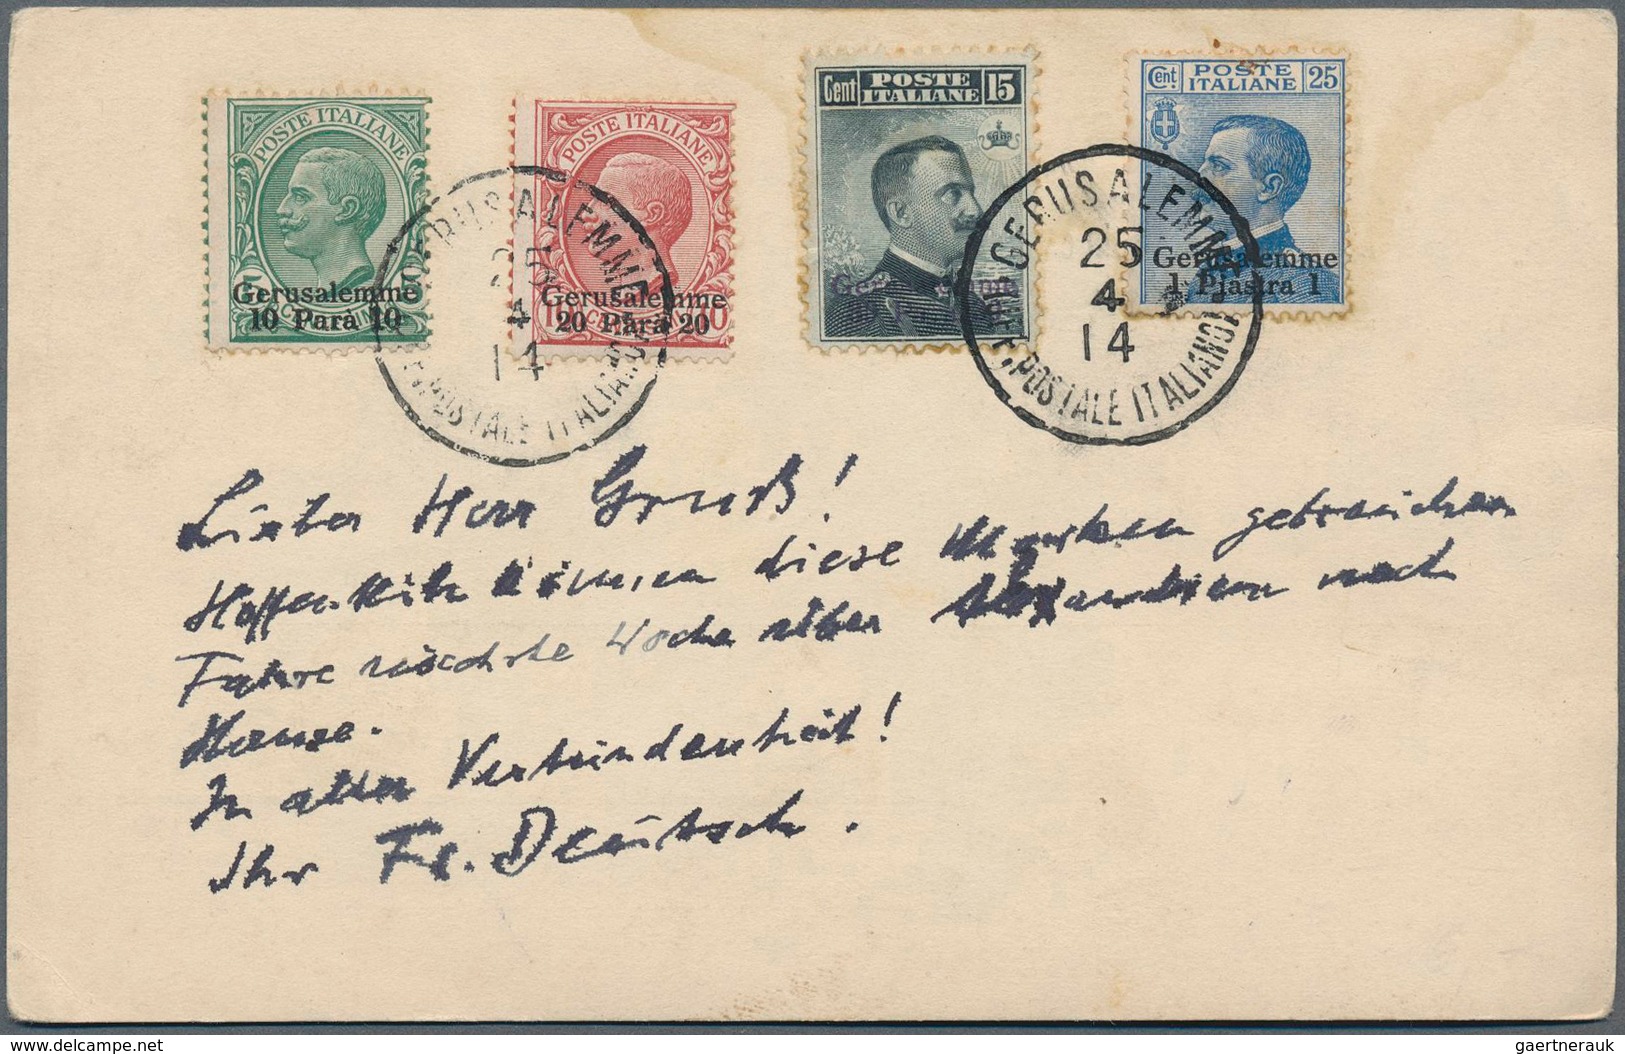 POSTE ITALIANE
Gerusalemme
10 Parà 10
POSTE ITALIANE
Gerusalemme
20 Parà 20
Cent POSTE ITALIANE 15
Cent. POSTE ITALIANE 25
Gerusalemme
1 Piastra 1
GERUSALEMME
25
4
14
POSTALE ITALIANO
GERUSALEMME
25
4
14
POSTALE ITALIANO
Lieber Herr Gruß!
Hoffentlich können diese Marken gebrauchen
Fahre nächste Woche über Alexandrien nach
Hause.
In alter Verbundenheit!
Ihr Fr. Deutsch.
www.delcampe.net
gaertnerauk